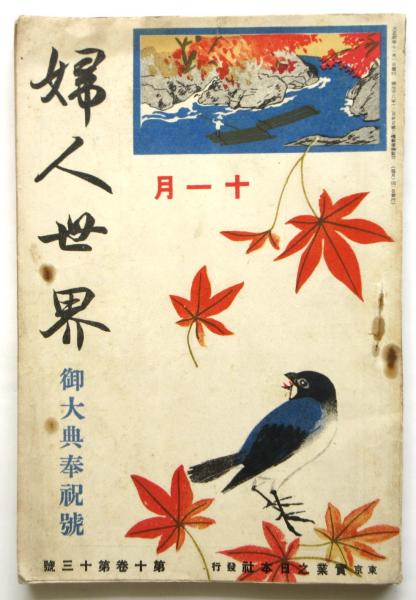 十一月
婦人世界
御大典奉祝號
東京 實業之日本社 發行
第十卷第十三號